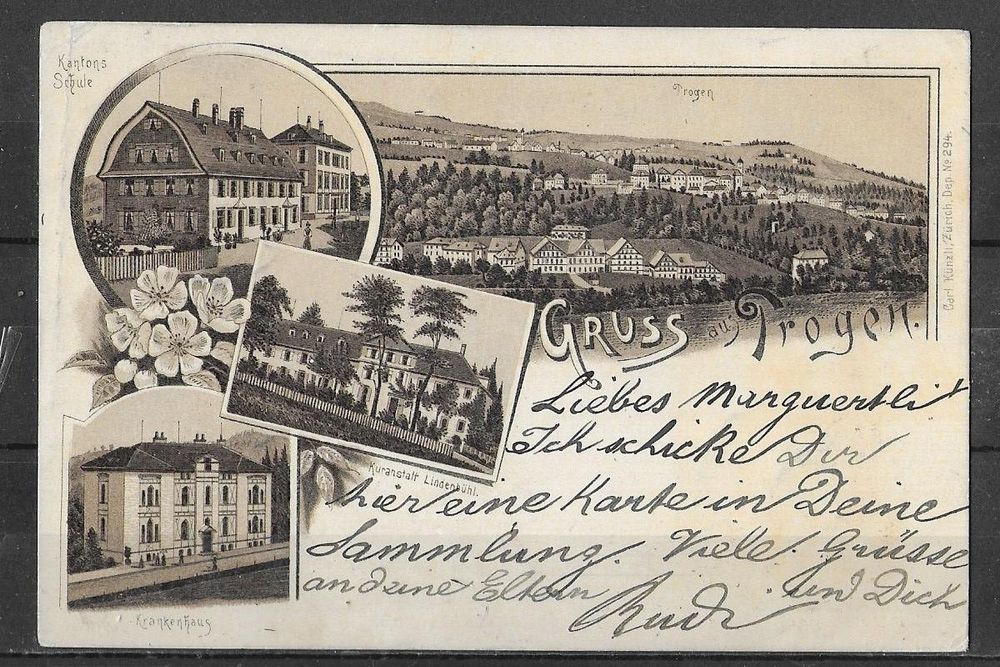 Kantons
Schule
Trogen
Carl Künzli, Zürich Dep. No 294.
GRUSS aus Trogen.
Kuranstalt Lindenbühl.
Krankenhaus
Liebes Marguertli!
Ich schicke Dir
hier eine Karte in Deine
Sammlung. Viele Grüsse
an deine Eltern und Dich
Rudi